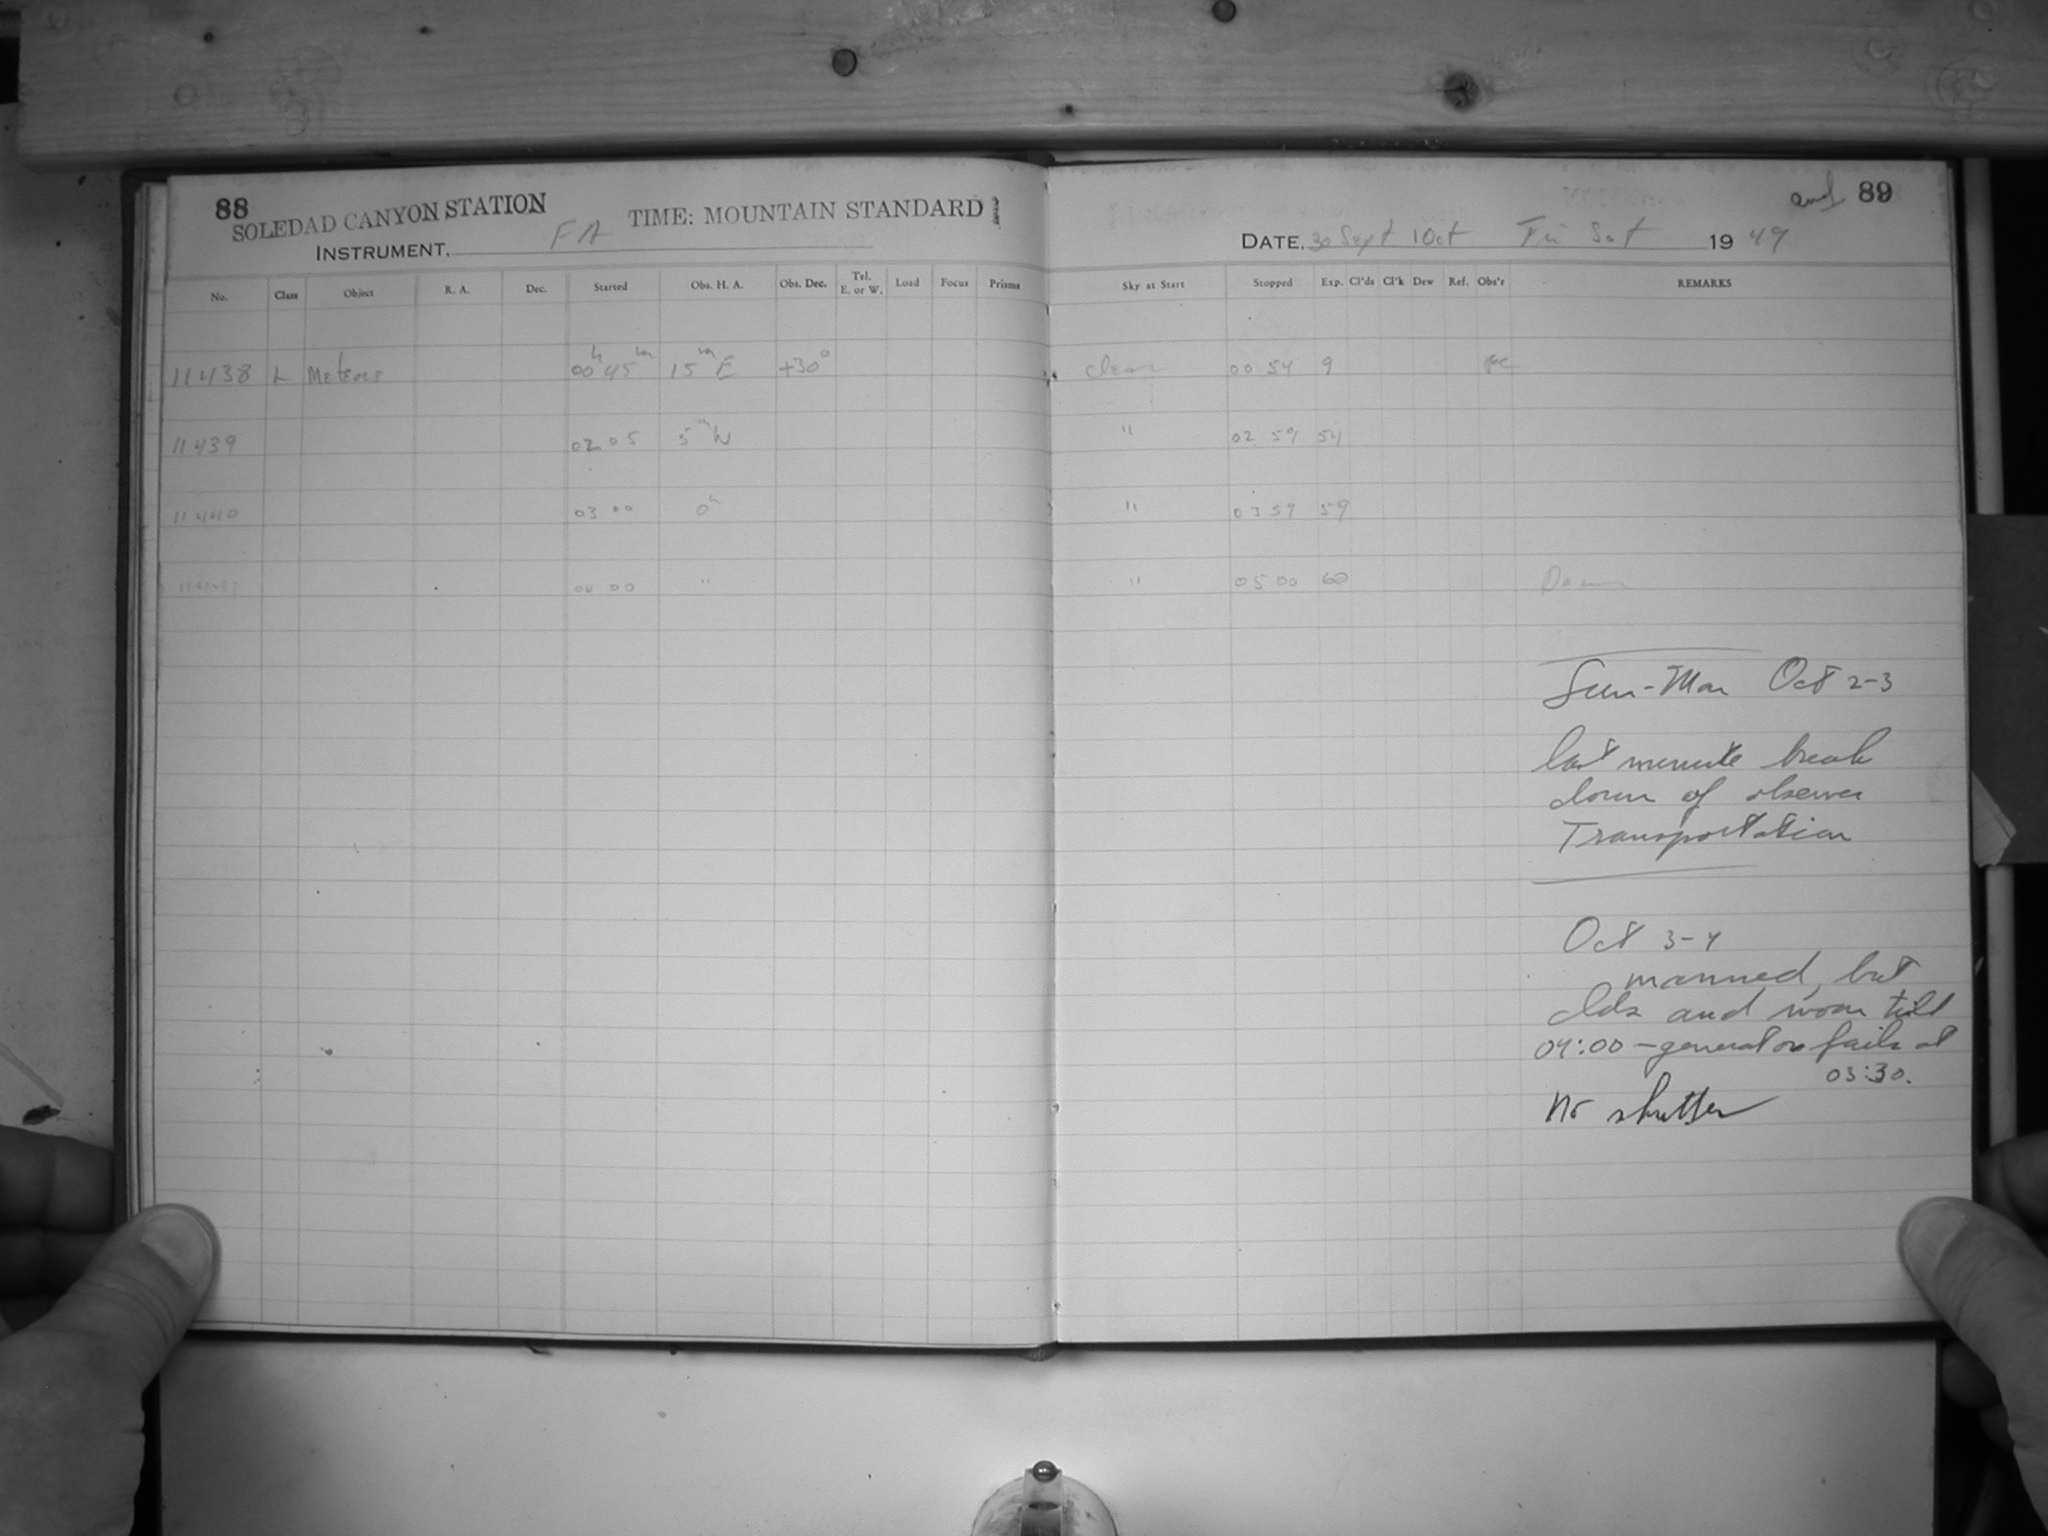 88
SOLEDAD CANYON STATION TIME: MOUNTAIN STANDARD
INSTRUMENT, FA
No. Class Object R. A. Dec. Started Obs. H. A. Obs. Dec. Tel. E. or W. Load Focus Prisms
11438 L Meteors 00h 45m 15m E +30°
11439 02 05 5m W
11440 03 00 0h
11441 04 00 "
end 89
DATE, 30 Sept 1 Oct Fri Sat 1949
Sky at Start Stopped Exp. Cl'ds Cl'k Dew Ref. Obs'r REMARKS
clear 00 54 9
" 02 59 54
" 03 59 59
" 05 00 60 Dawn
Sun-Mon Oct 2-3
last minute break
down of observer
Transportation
Oct 3-4
manned, but
clds and moon till
04:00 - generator fails at
03:30.
No shutter